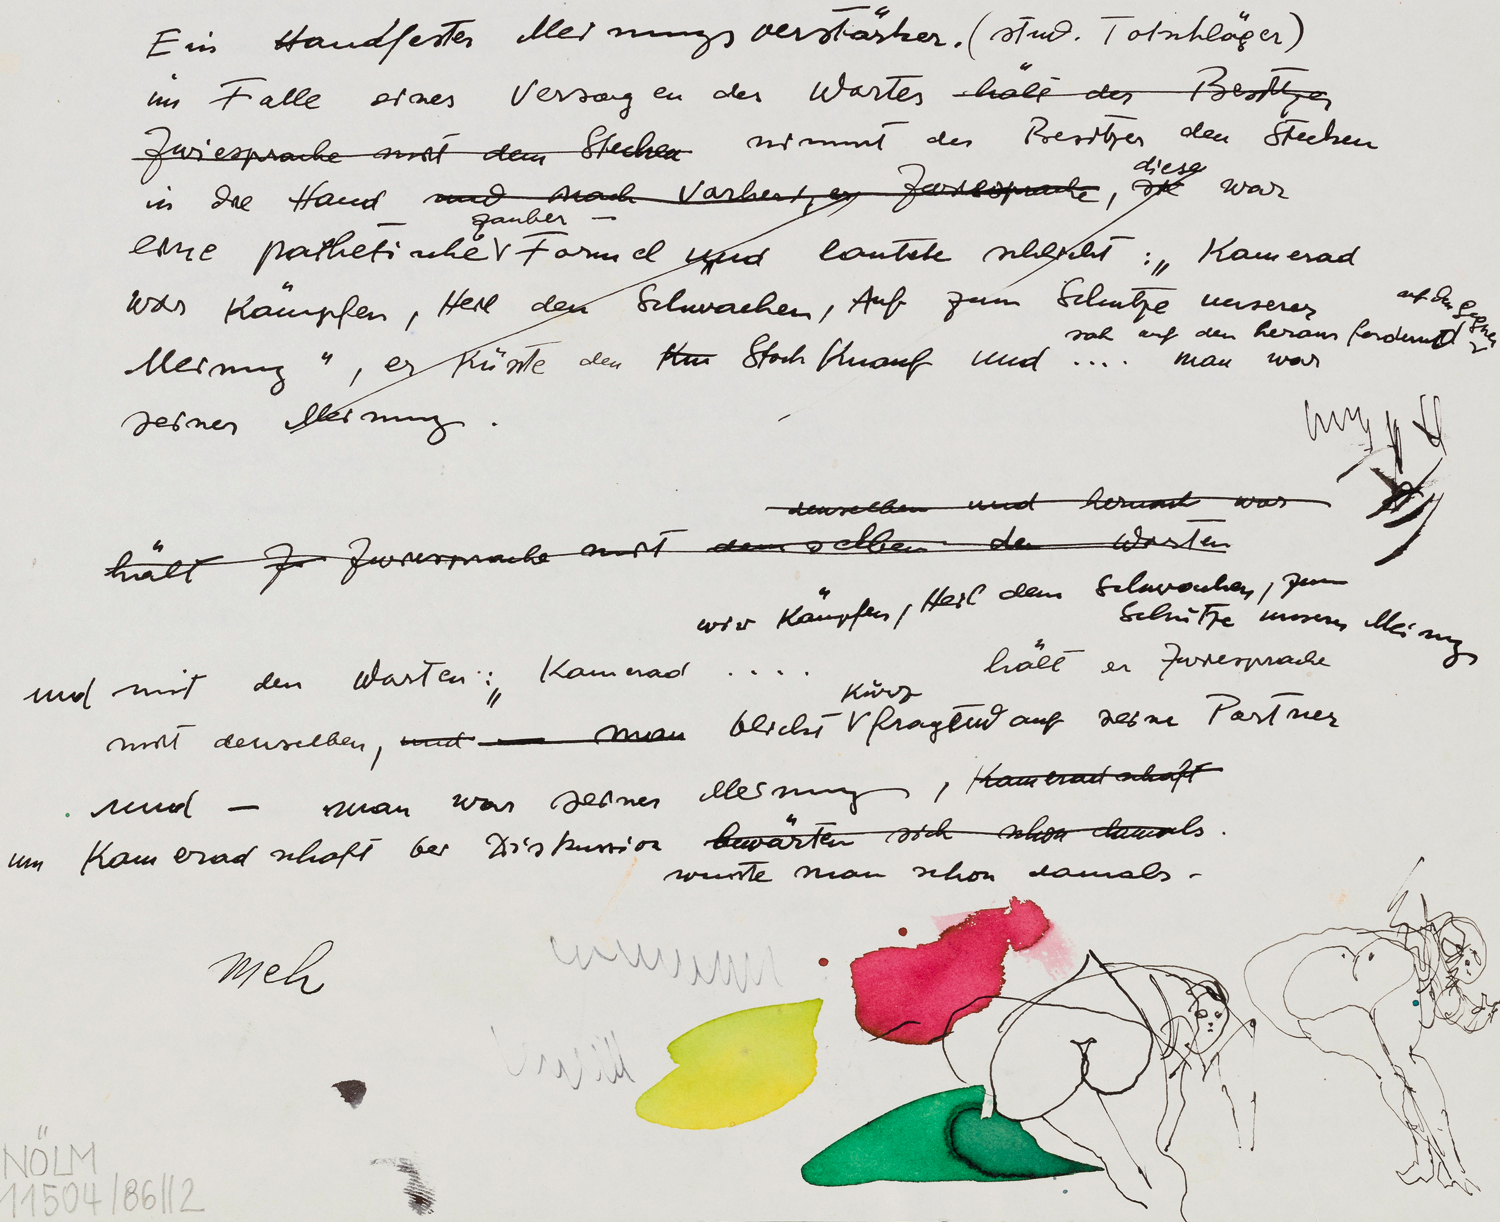 Ein Handfester Meinungsverstärker. (stud. Totschläger)
im Falle eines Versagen der Worte hält der Besitzer
Zwiesprache mit dem Stecken nimmt der Besitzer den Stecken
diese
in die Hand und nach Vorher, er Zwiesprache, sie war
zauber –
eine pathetische Formel und lautete schlicht : „ Kamerad
wir Kämpfen, Heil den Schwachen, Auf zum Schutze unserer
auf den Gegner
sah auf den herausfordernd
Meinung " , er Küsste den Stock Knauf und .... man war
seiner Meinung .
denselben und hernach war
hält Z Zwiesprache mit demselben den Worten
wir Kämpfen, Heil dem Schwachen, zum
Schutze unserer Meinung
und mit den Worten : „ Kamerad .... hält er Zwiesprache
Kurz
mit denselben, und — man blickt fragend auf seine Partner
und — man war seiner Meinung , Kameradschaft
um Kameradschaft bei Diskussion bewärten sich schon damals .
wusste man schon damals -
Meh
NÖLM
11504/86/12